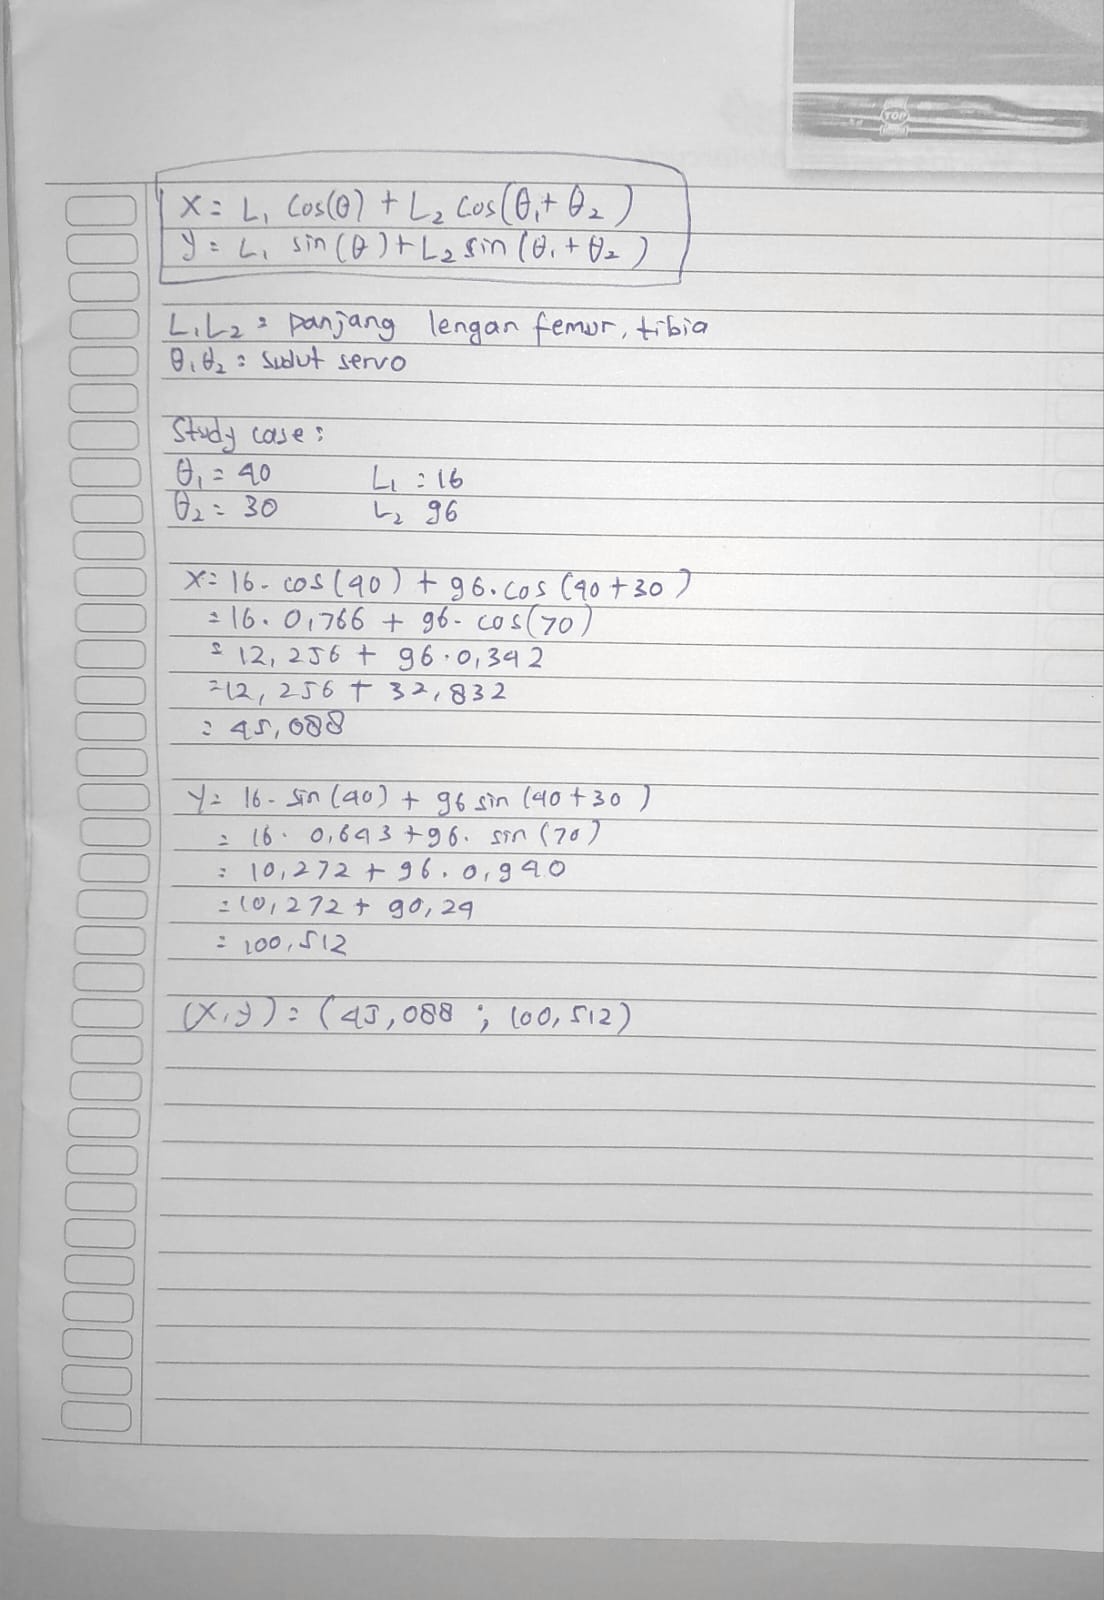 TOP
X = L₁ Cos(θ) + L₂ Cos(θ₁ + θ₂)
y = L₁ sin(θ) + L₂ sin(θ₁ + θ₂)
L₁L₂ = panjang lengan femur, tibia
θ₁θ₂ = sudut servo
Study case :
θ₁ = 40 L₁ : 16
θ₂ = 30 L₂ 96
X = 16 . cos(40) + 96 . cos(40+30)
= 16 . 0,766 + 96 . cos(70)
= 12,256 + 96 . 0,342
= 12,256 + 32,832
= 45,088
Y = 16 . sin(40) + 96 sin(40+30)
= 16 . 0,643 + 96 . sin(70)
= 10,272 + 96 . 0,940
= 10,272 + 90,24
= 100,512
(X,y) = (45,088 ; 100,512)